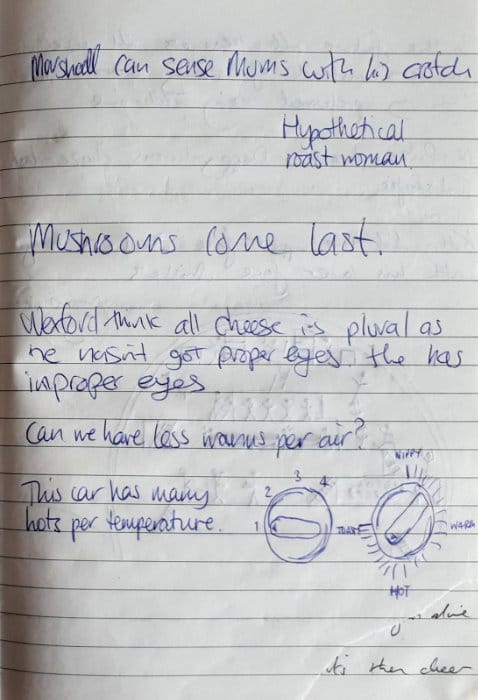 Marshall can sense Mums with his crotch
Hypothetical
roast woman.
Mushrooms come last.
Wexford think all cheese is plural as
he hasn't got proper eyes. He has
improper eyes.
Can we have less warms per air?
This car has many
hots per temperature.
1 2 3 4
NIPPY
TOASTY
WARM
HOT
its then cheer